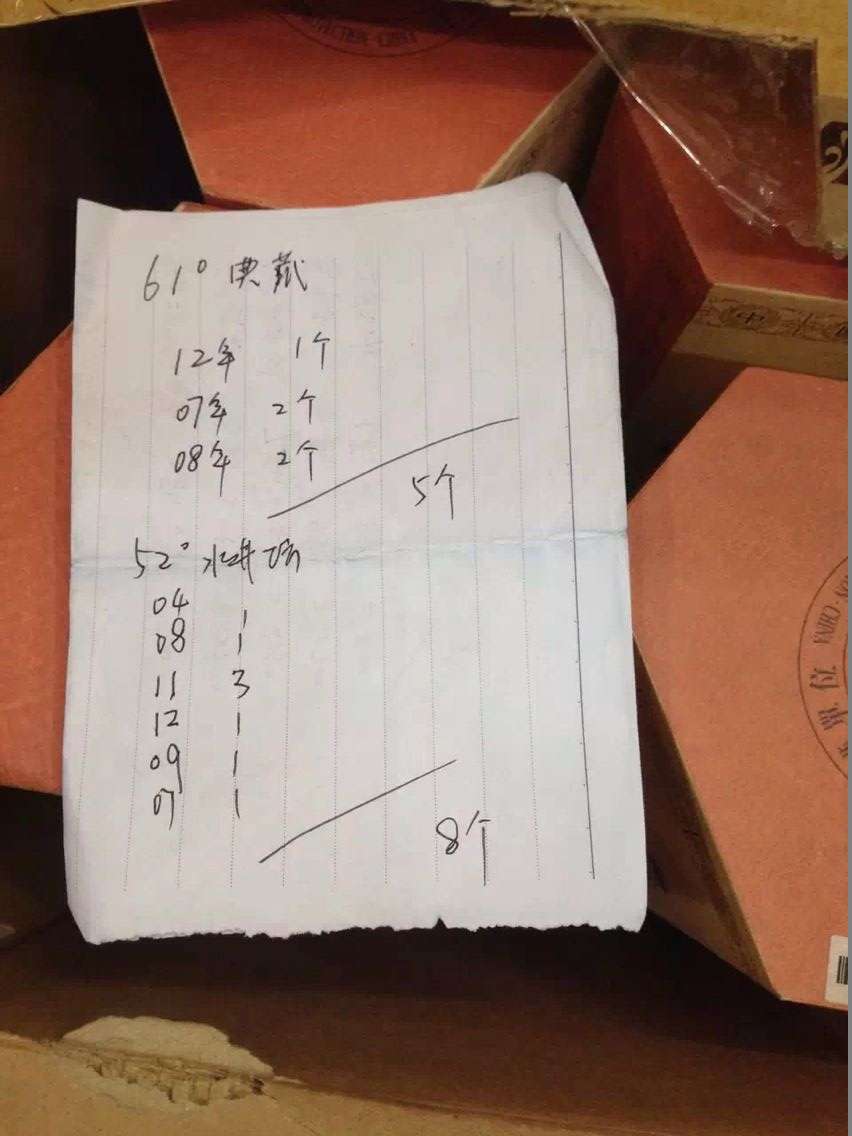 61° 典藏
12年 1个
07年 2个
08年 2个
5个
52° 水井坊
04 1
08 1
11 3
12 1
09 1
07 1
8个